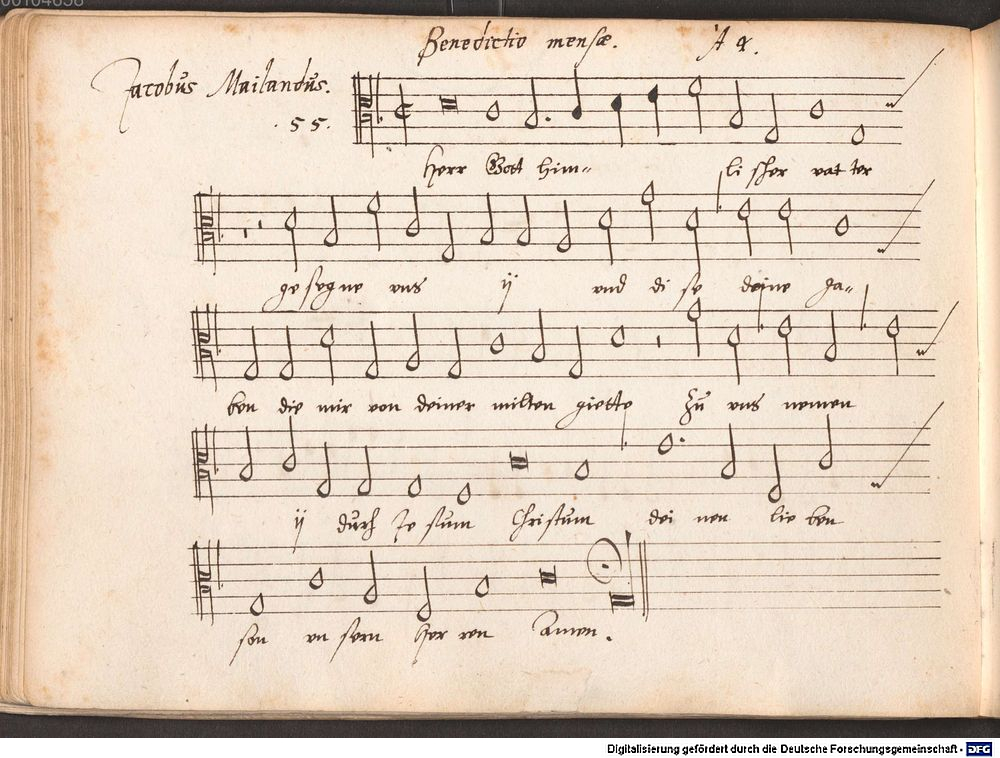 00104638
Benedictio mensæ. A 4.
Jacobus Mailandus.
. 55.
Herr Gott him= li scher vat ter
ge segne vns ij vnd di se deine ga=
ben die mir von deiner milten giette zu vns nemen
ij durch Je sum Christum dei nen lie ben
son vn sern her ren Amen.
Digitalisierung gefördert durch die Deutsche Forschungsgemeinschaft - DFG